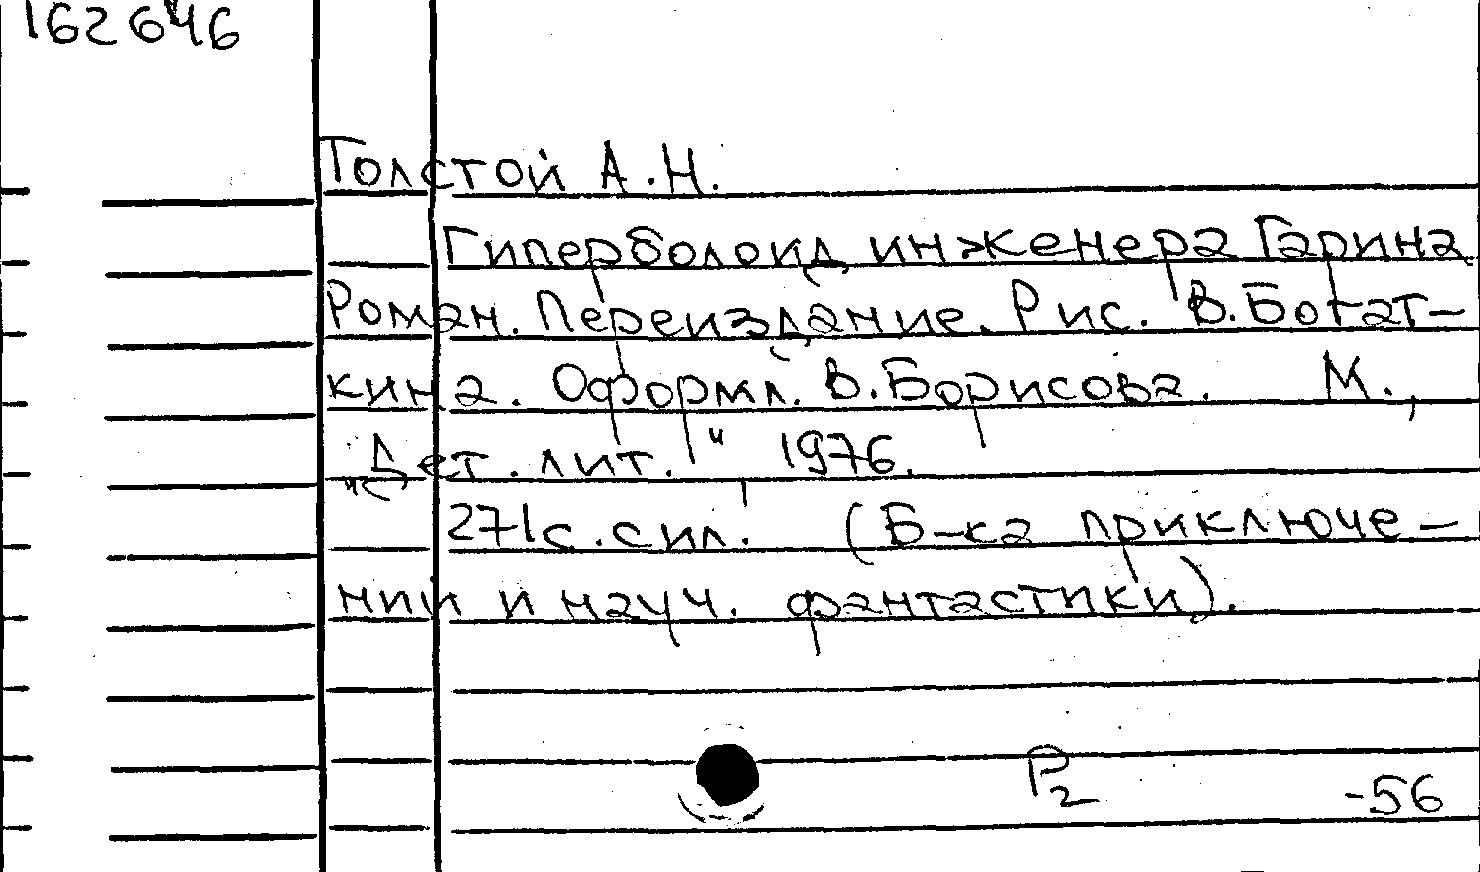 162646
Толстой А.Н.
Гиперболоид инженера Гарина
Роман. Переиздание. Рис. В.Богат-
кина. Оформл. В.Борисова. М.,
"Дет. лит." 1976.
271с. с ил. (Б-ка приключе-
ний и науч. фантастики).
Р2
-56